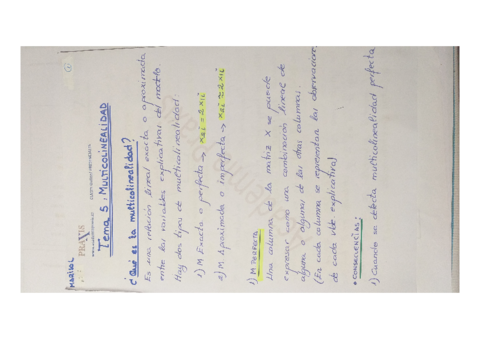 MARISOL
PRAXIS
①
Tema 5: MULTICOLINEALIDAD
¿Qué es la multicolinealidad?
Es una relación lineal exacta o aproximada
entre las variables explicativas del modelo.
Hay dos tipos de multicolinealidad:
1) M Exacta o perfecta → x2i = 2x1i
2) M Aproximada o imperfecta → x2i ≈ 2x1i
1) M PERFECTA
Una columna de la matriz X se puede
expresar como una combinación lineal de
alguna o algunas de las otras columnas.
(En cada columna se representan las observaciones
de cada vble explicativa)
• CONSECUENCIAS:
1) Cuando se detecta multicolinealidad perfecta